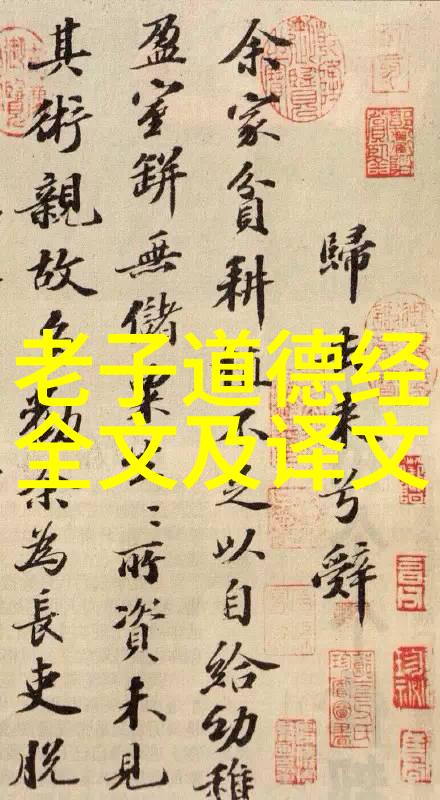 老子道德经
全文及译文
歸去来兮辭
余家貧耕植不足以自給幼稚
盈室缾無儲粟生〻所資未見
其術親故多勸余為長吏脱